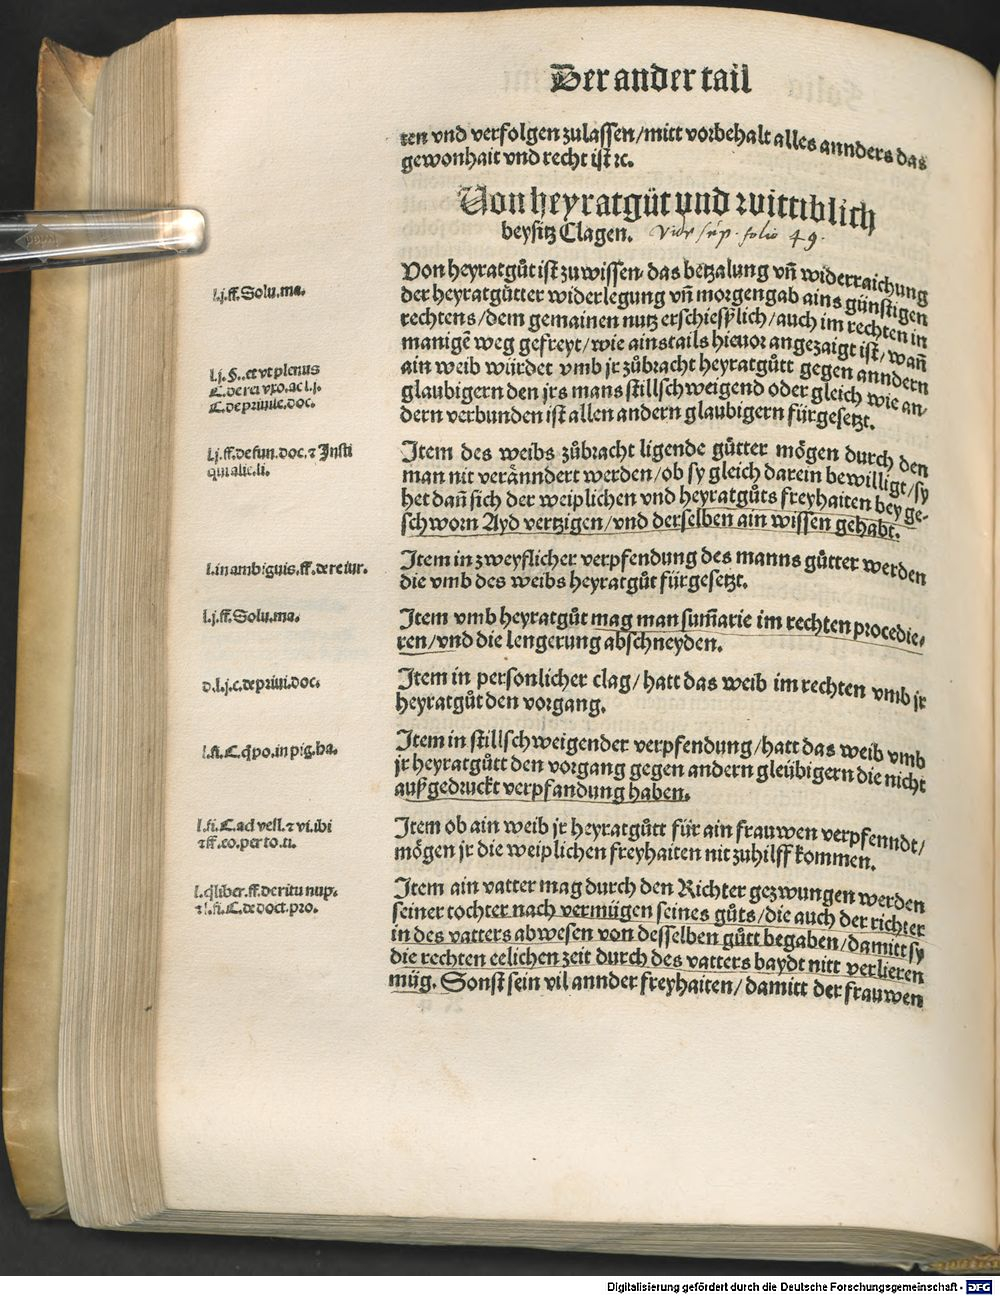 Der ander tail
ten vnd verfolgen zulassen/mitt vorbehalt alles annders das
gewonhait vnd recht ist ꝛc.
Von heyratgůt vnd wittiblich
beysitz Clagen. vide sup. folio 49.
l.j.ff.Solu.ma.
Von heyratgůt ist zu wissen, das betzalung vñ widerraichung
der heyratgůtter widerlegung vñ morgengab ains günstigen
rechtens/dem gemainen nutz erschießlich/auch im rechten in
manigē weg gefreyt/wie ainstails hieuor angezaigt ist/wañ
l.j.§..et vt plenius
C.de rei vxo.ac l.j.
C.de priuile.doc.
ain weib würdet vmb jr zůbracht heyratgůtt gegen anndern
glaubigern den jrs mans stillschweigend oder gleich wie an-
dern verbunden ist allen andern glaubigern fürgesetzt.
l.j.ff.de fun.doc.⁊ Insti
qui alie.li.
Item des weibs zůbracht ligende gůtter mögen durch den
man nit veränndert werden/ob sy gleich darein bewilligt/sy
het dañ sich der weiplichen vnd heyratgůts freyhaiten bey ge-
schworn Ayd vertzigen/vnd derselben ain wissen gehabt.
l.in ambiguis.ff.de re iur.
Item in zweyflicher verpfendung des manns gůtter werden
die vmb des weibs heyratgůt fürgesetzt.
l.j.ff.Solu.ma.
Item vmb heyratgůt mag man sum̄arie im rechten procedie-
ren/vnd die lengerung abschneyden.
d.l.j.c.de priui.doc.
Item in personlicher clag/hatt das weib im rechten vmb jr
heyratgůt den vorgang.
l.fi.C.q̄ po.in pig.ha.
Item in stillschweigender verpfendung/hatt das weib vmb
jr heyratgůtt den vorgang gegen andern gleübigern die nicht
außgedruckt verpfandung haben.
l.fi.C.ad vell.⁊ vi.ibi
⁊ff.eo.per to.ti.
Item ob ain weib jr heyratgůtt für ain frauwen verpfenndt/
mögen jr die weiplichen freyhaiten nit zuhilff kommen.
l.q̄ liber.ff.de ritu nup.
⁊ l.fi.C.de doct.pro.
Item ain vatter mag durch den Richter gezwungen werden
seiner tochter nach vermügen seines gůts/die auch der richter
in des vatters abwesen von desselben gůtt begaben/damitt sy
die rechten eelichen zeit durch des vatters baydt nitt verlieren
müg. Sonst sein vil annder freyhaiten/damitt der frauwen
Digitalisierung gefördert durch die Deutsche Forschungsgemeinschaft - DFG